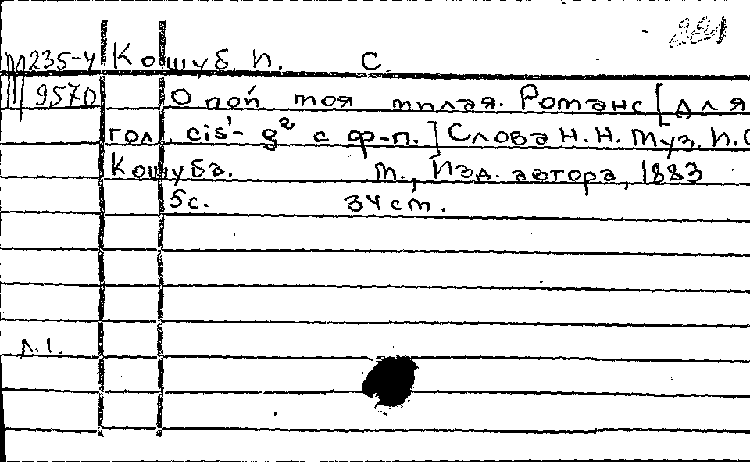 221
М 235-4 Кошуб И. С.
957D О пой моя милая. Романс [для
гол. cis¹- g² с ф-п.] Слова Н.Н. Муз. И.С
Кошуба. М., Изд. автора, 1883
5с. 34 см.
Л.1.